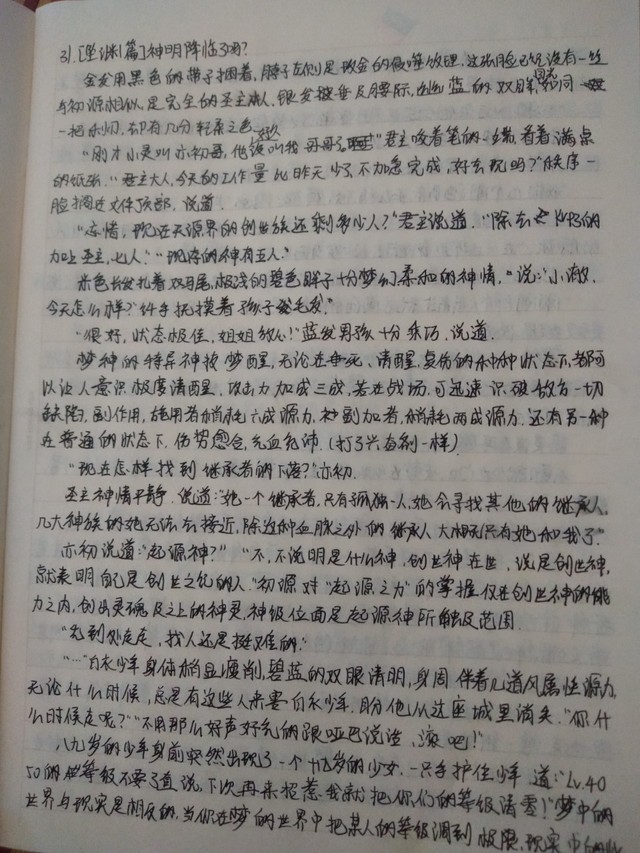 31.[坠渊篇]神明降临了吗?
金发用黑色的带子捆着,脖子左侧是玫金的纹理,这张脸已经没有一丝
与初源相似,是完全的圣主本人,银发披垂及腰际,幽蓝的双眸如同
一把乐刃,却有几分轻柔之色
“刚才小灵叫亦初哥,他该叫我哥哥了”君主咬着笔的一端,看着满点
的纸张.“君主大人,今天的工作量比昨天少了,不加急完成,好去玩吗?”秩序一
脸搁近文件顶部,说道.
“亦惜,现还在源界的创世族还剩多少人?”君主说道.“除去
加上圣主,七人.”“现存的神有五人.”
米色长发扎着双马尾,极浅的碧色眸子十分梦幻柔和的神情.“说:“小澈,
今天怎么样?”纤手抚摸着孩子毛发.”
“很好,状态极佳,姐姐放心!”蓝发男孩十分乖巧,说道.
梦神的特异神技梦醒,无论在垂死、清醒、复伤的种种状态下,都可
以让人意识极度清醒,攻击力加成三成,若在战场,可迅速识破敌方一切
缺陷,副作用,施用者消耗六成源力,被副加者,消耗两成源力.还有另一种
在普通的状态下,伤势愈合,气血充沛.(打了兴奋剂一样)
“现在怎样找到继承者的下落?”亦初.
圣主神情平静,说道:“她一个继承者,只有孤独一人,她会寻找其他的继承人,
几大种族的她无法去接近,除这种血脉之外的继承人大概就只有她和我了.”
亦初说道:“起源神?”“不,不说明是什么神,创世神在世,说是创世神,
就表明自己是创世之纪的人.”初源对“起源之力”的掌握仅在创世神的能
力之内,创出灵魂及之上的神灵,神级位面是起源神所触及范围.
“先到处走走,找人还是挺难的.”
“…”白衣少年身体稍显瘦削,碧蓝的双眼清明,身周伴着几道风属性源力,
无论什么时候,总是有这些人来害白衣少年,盼他从这座城里消失.“你什
么时候走呢?”“不用那么好声好气的跟哑巴说话,滚吧!”
八九岁的少年身前突然出现了一个十几岁的少女,一只手护住少年道:“Lv.40
50的世等级不要了直说,下次再来招惹我就把你们的等级清零!”梦中的
世界与现实是相反的,当你在梦的世界中把某人的等级调到极限,现实中的